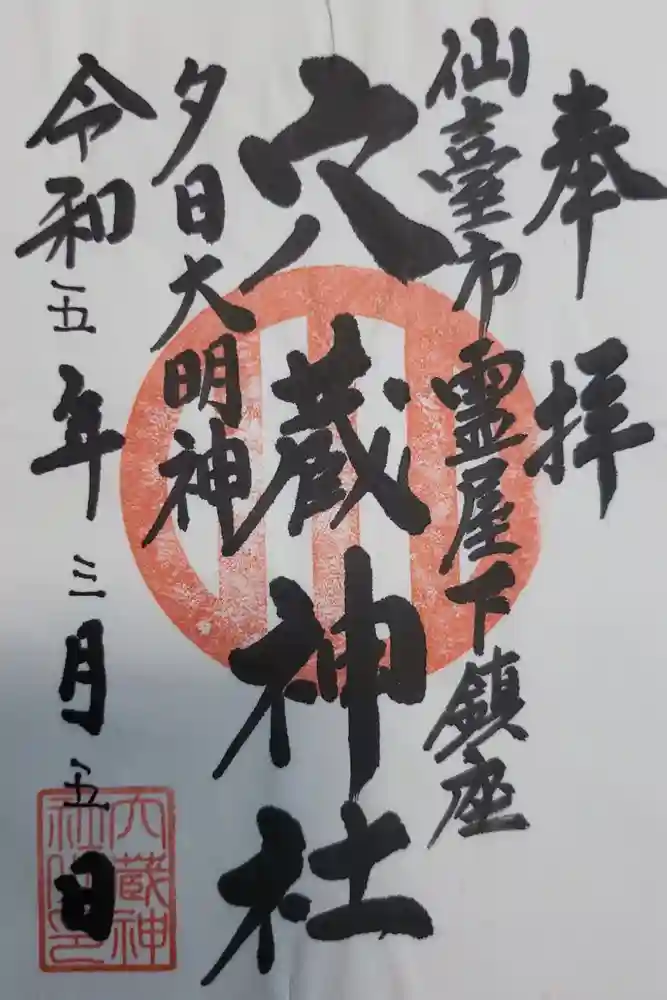 奉拝
仙臺市霊屋下鎮座
穴蔵神社
夕日大明神
令和五年三月五日
穴蔵神社之印